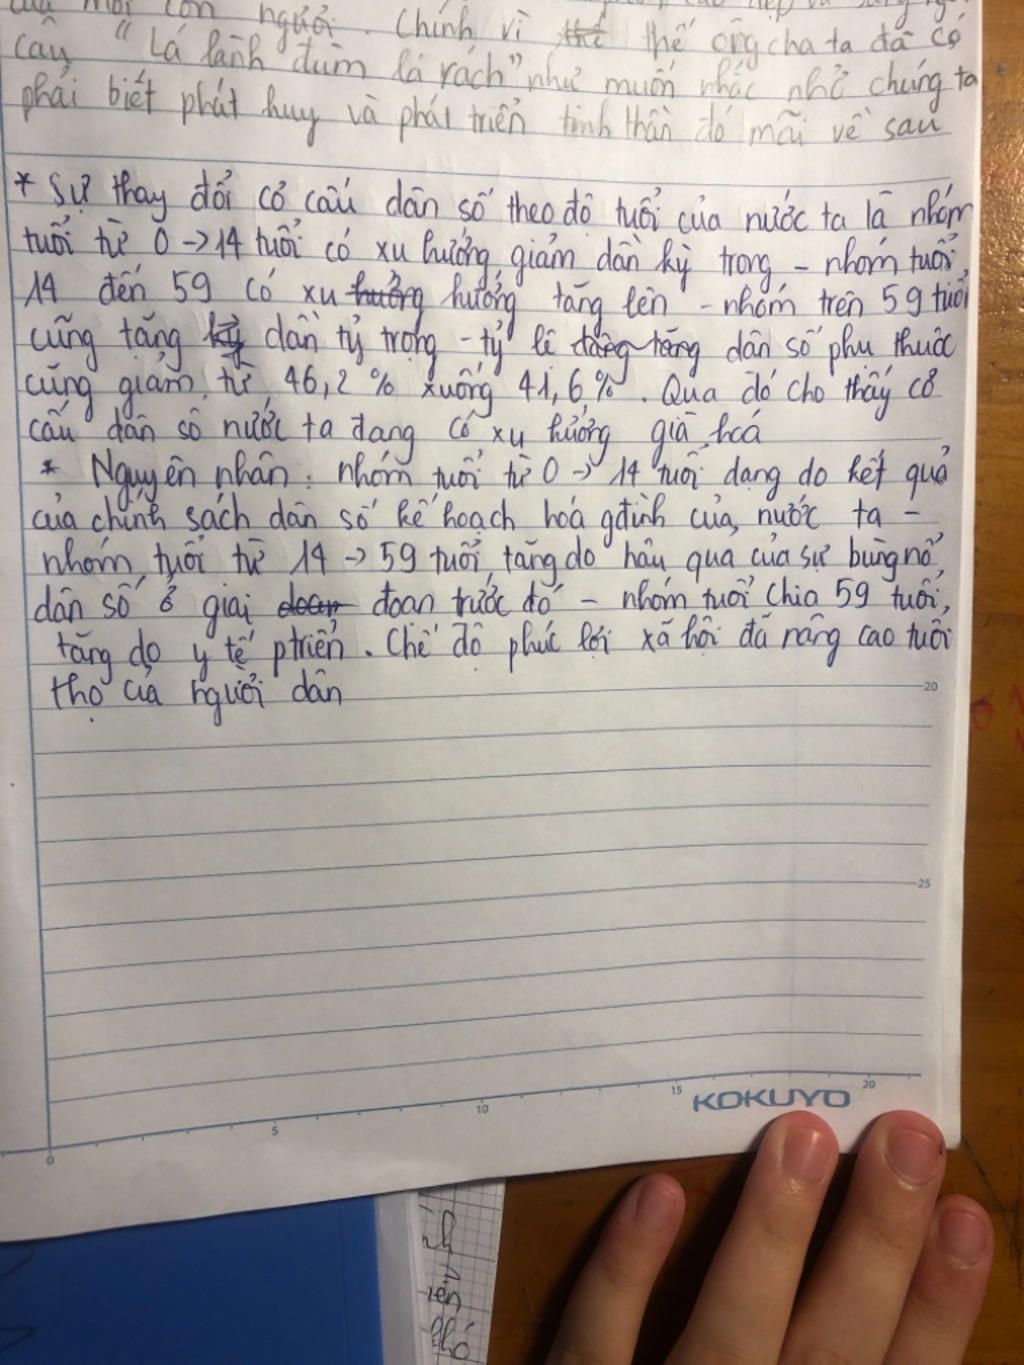 của mỗi con người. Chính vì thế thế ông cha ta đã có
câu "Lá lành đùm lá rách" như muốn nhắc nhở chúng ta
phải biết phát huy và phát triển tinh thần đó mãi về sau
* Sự thay đổi cơ cấu dân số theo độ tuổi của nước ta là nhóm
tuổi từ 0 → 14 tuổi có xu hướng giảm dần kỳ trong - nhóm tuổi
14 đến 59 có xu hưởng hướng tăng lên - nhóm trên 59 tuổi
cũng tăng kỷ dần tỷ trọng - tỷ lê tăng tăng dân số phu thuôc
cũng giảm từ 46,2 % xuống 41,6 %. Qua đó cho thấy cơ
cấu dân số nước ta đang có xu hướng già hoá
* Nguyên nhân: nhóm tuổi từ 0 → 14 tuổi dang do kết quả
của chính sách dân số kế hoạch hoá gđình của nước ta -
nhóm tuổi từ 14 → 59 tuổi tăng do hâu qua của sự bùng nổ
dân số ở giai đoạn đoan trước đó - nhóm tuổi chia 59 tuổi,
tăng do y tế ptriển. Chế đô phúc lợi xã hôi đã nâng cao tuổi
thọ của người dân
20
25
0 5 10 15 20
KOKUYO